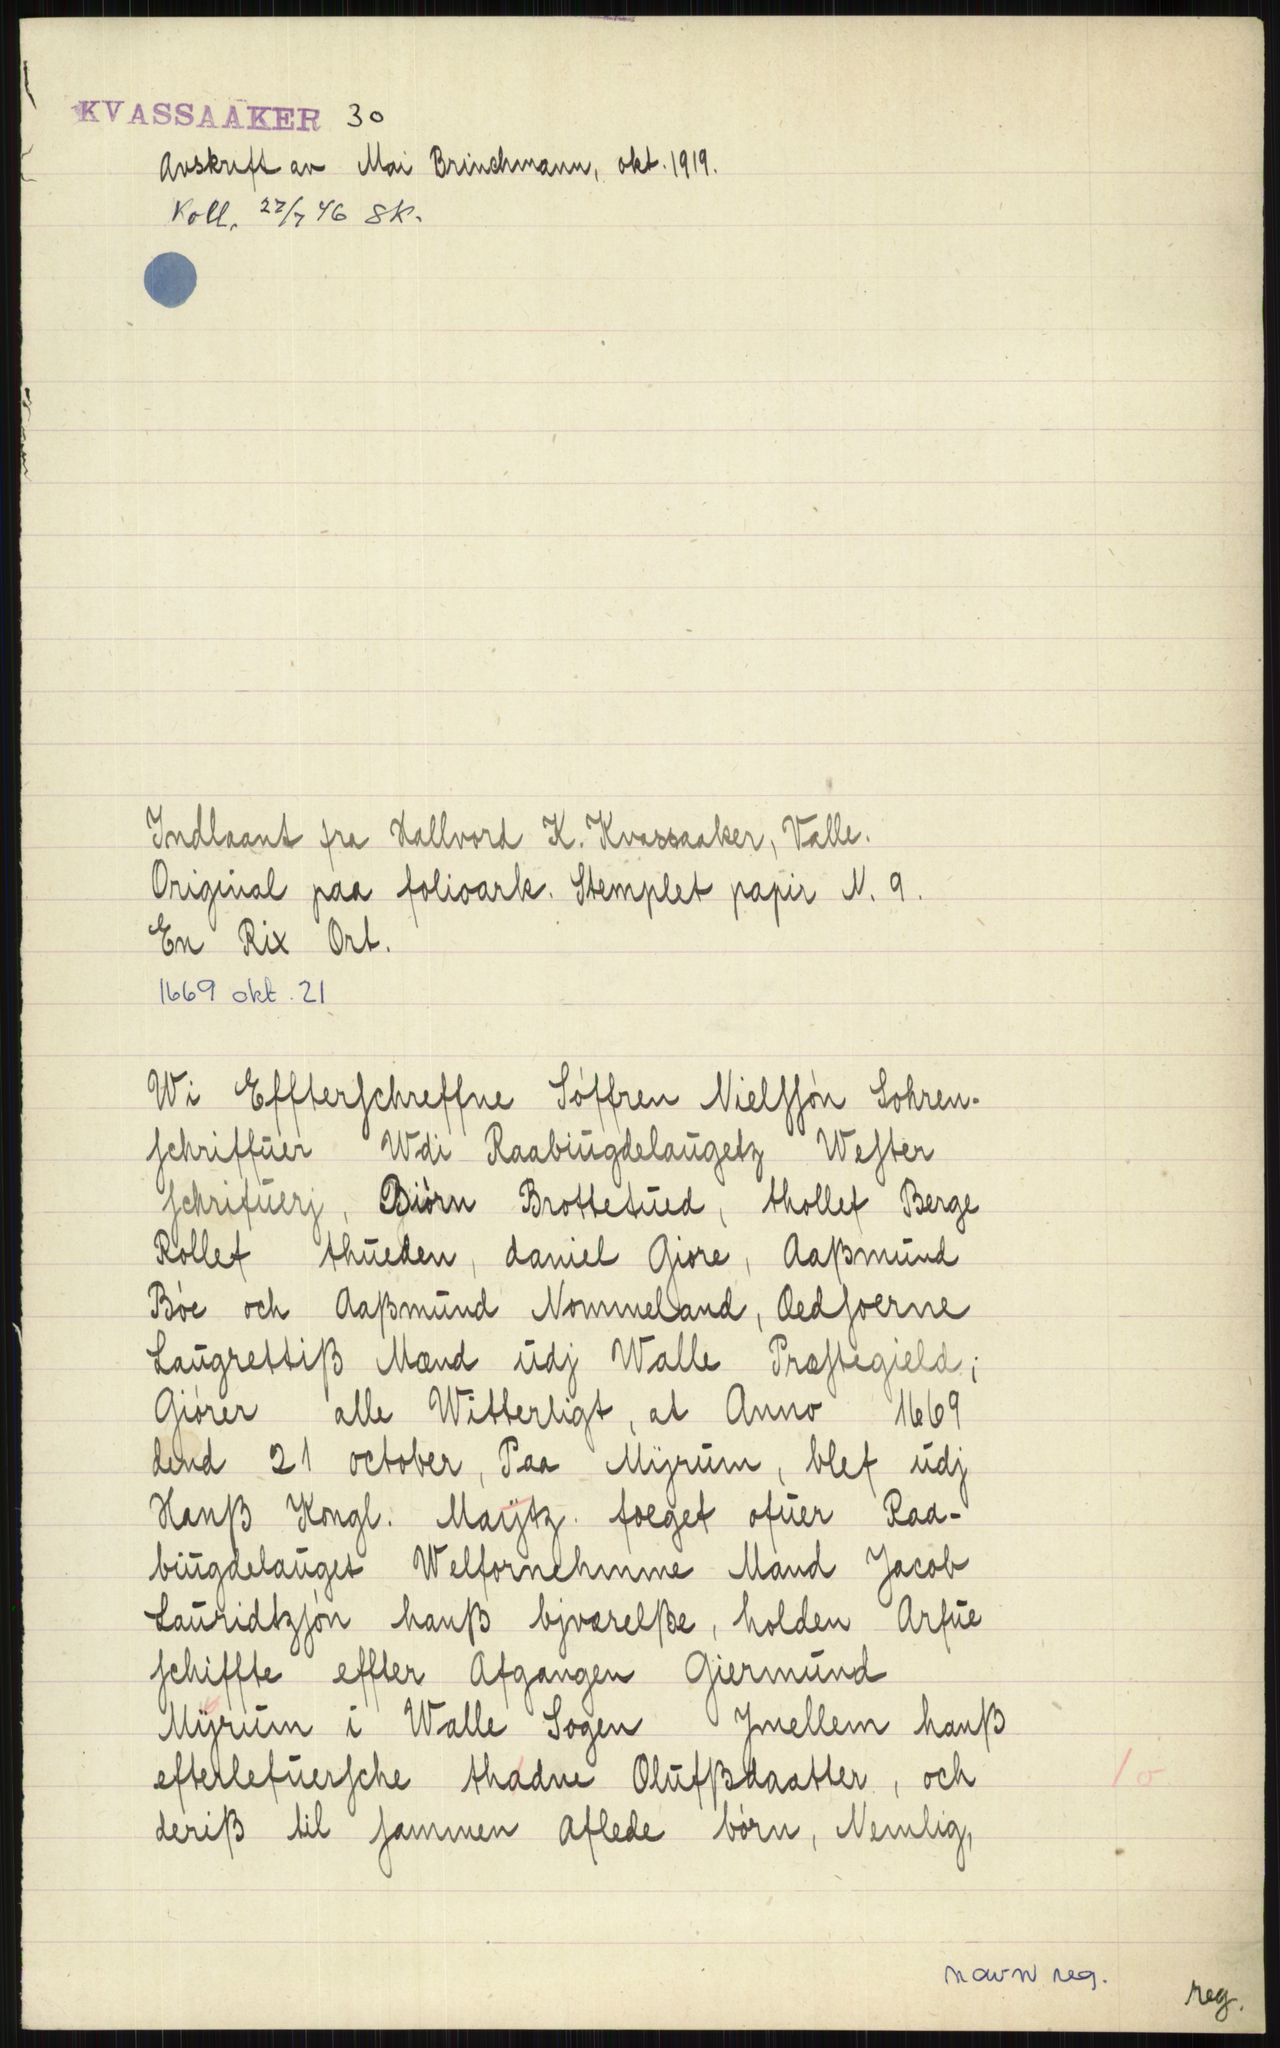 KVASSAAKER 30
Avskrift av Mai Brinchmann, okt. 1919.
Koll. 27/7 46 SK.
Indlaant fra Hallvord K. Kvassaaker, Valle.
Original paa folioark. Stemplet papir N. 9.
En Rix Ort.
1669 okt. 21
Wi Effterschreffne Søffren Nielssøn Sohren-
schriffuer Wdi Raabiugdelaugetz Wester
schrifuerj, Biørn Brottetued, thollef Berge
Rollef thueden, daniel Giøre, Aaßmund
Bøe och Aaßmund Nommeland, Oedsoerne
Laugrettiß Mænd udj Walle Præstegield;
Giører alle Witterligt, at Anno 1669
dend 21 october, Paa Mÿrum, blef udj
Hanß Kongl. Maÿtz. foeget ofuer Raa-
biugdelauget Welfornehmme Mand Jacob
Lauridtzsøn hanß bjværelße, holden Arfue
schiffte effter Afgangen Giermund
Mÿrum i Walle Sogen Jmellem hanß
efterlefuersche thadne Olufßdaatter, och
deriß til sammen aflede børn, Nemlig,
1 o
navn reg.
reg.